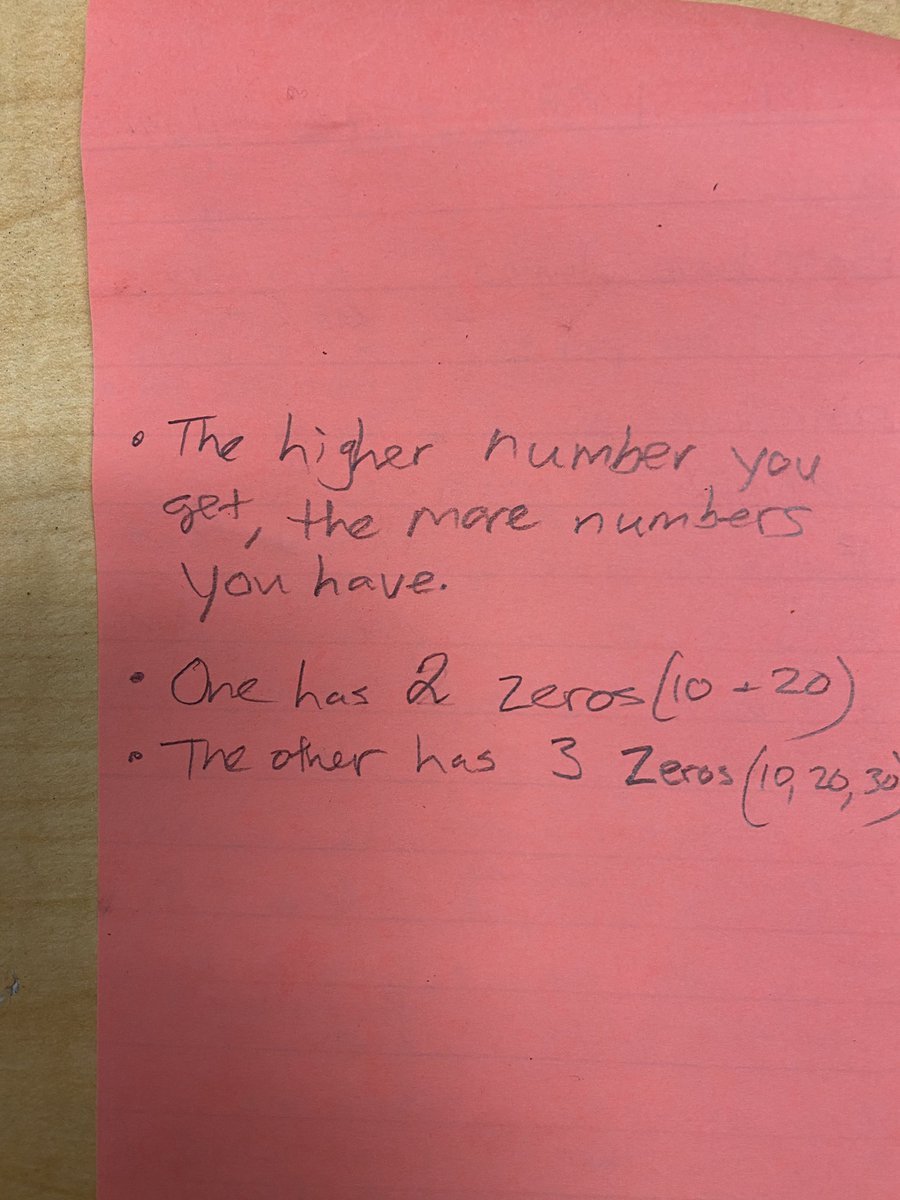 • The higher number you
get, the more numbers
you have.
• One has 2 zeros (10 + 20)
• The other has 3 zeros (10, 20, 30)